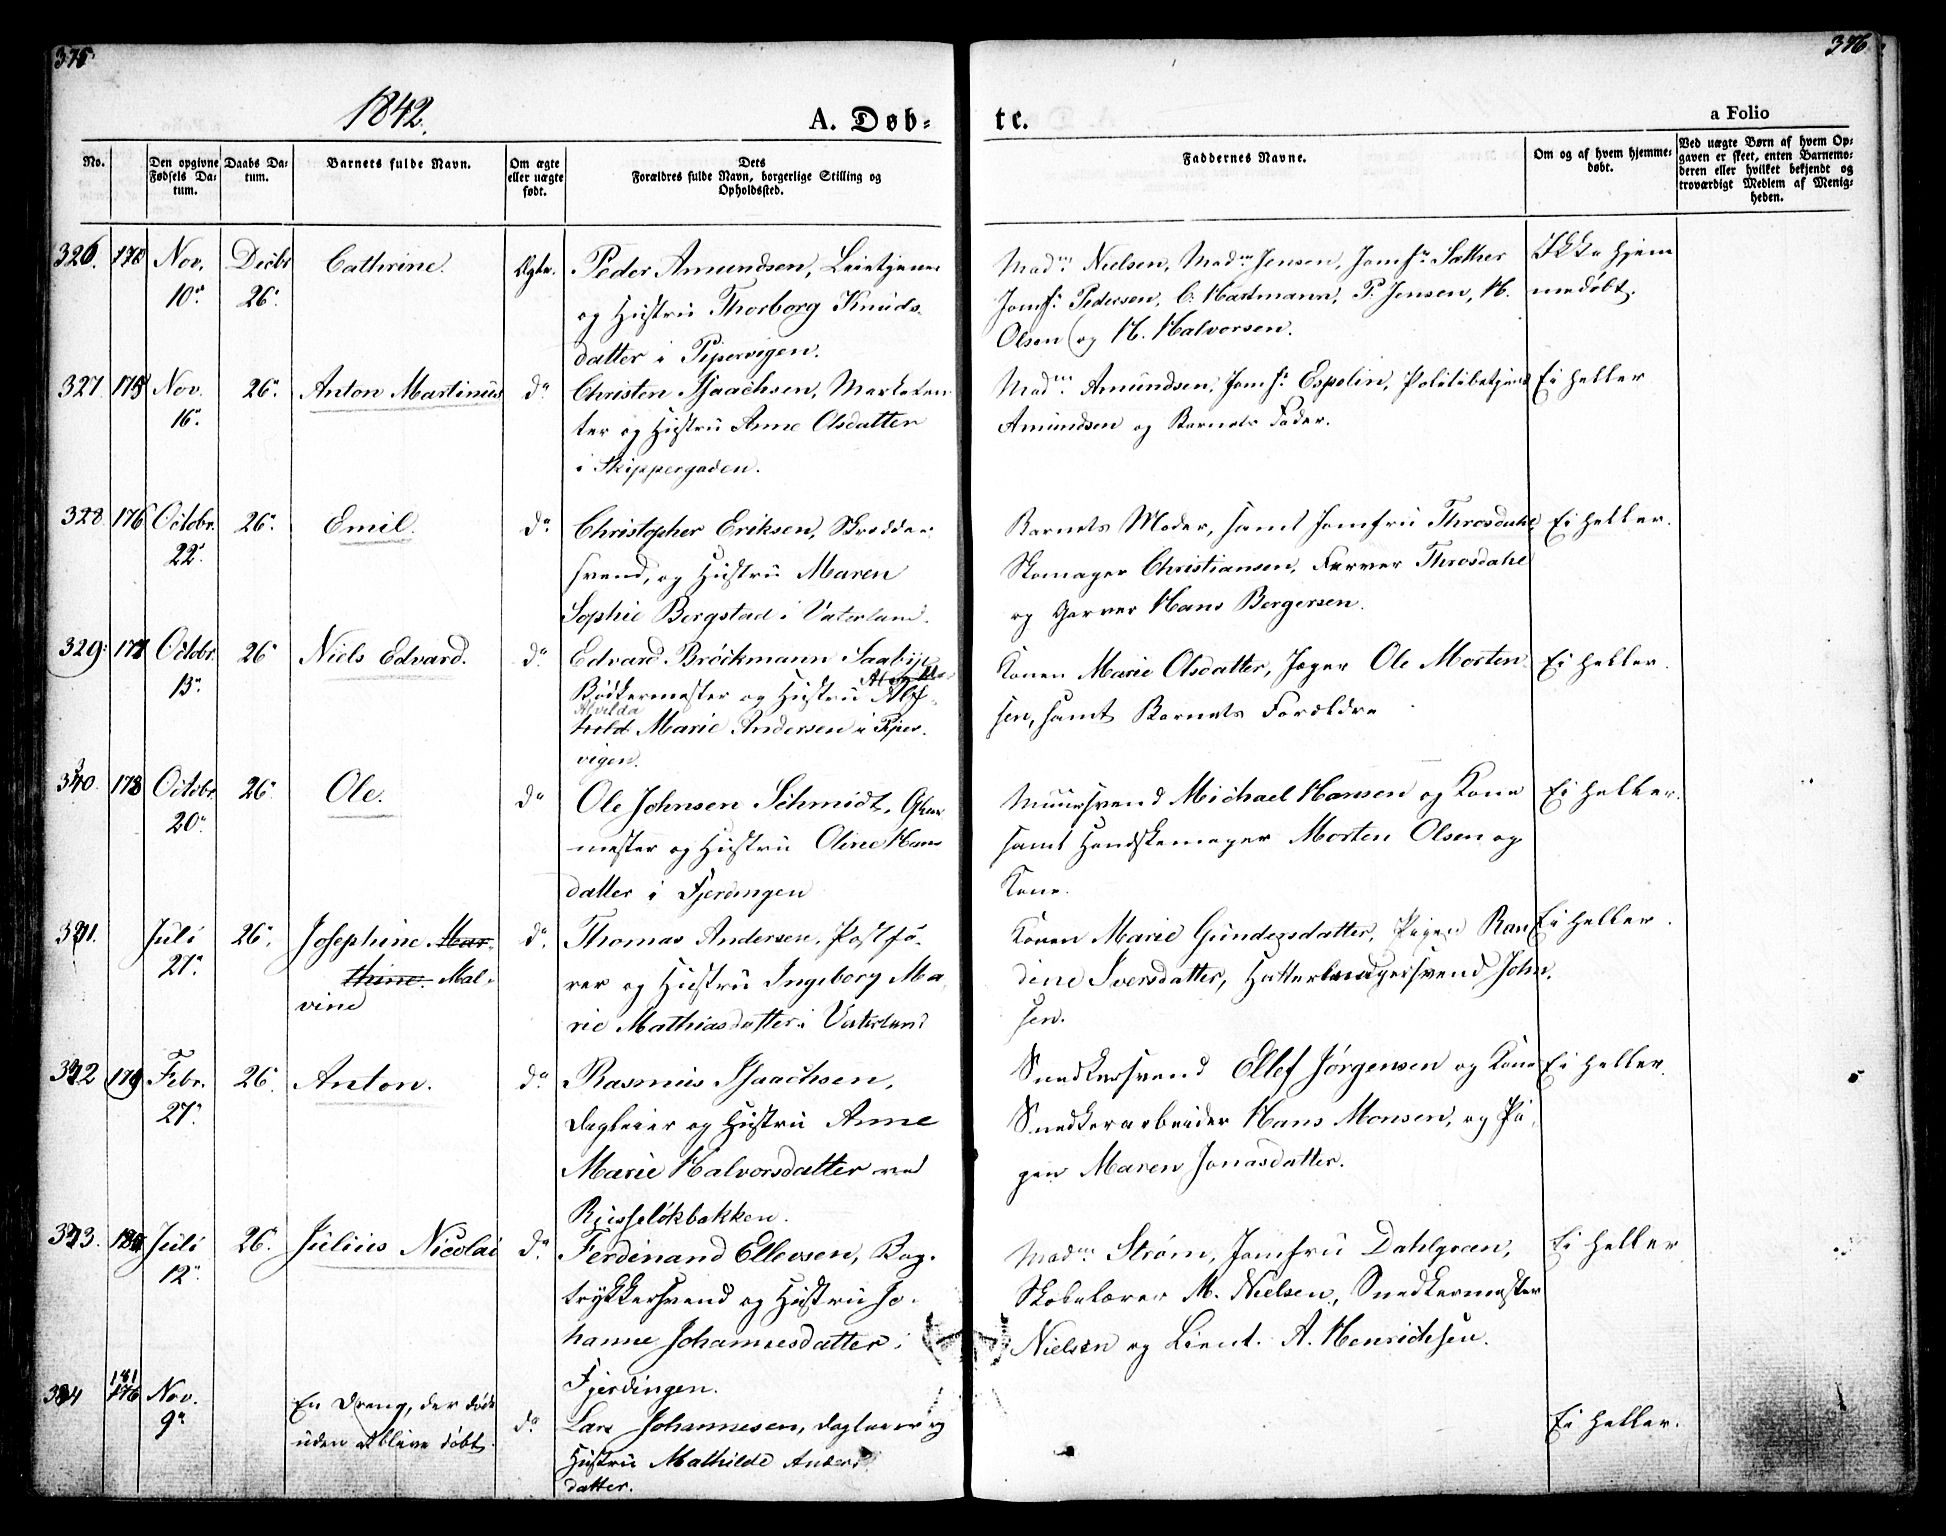 375
376
1842.
A. Døb-
te.
a Folio
No.
Den opgivne Fødsels Da-
tum.
Daabs Da-
tum.
Barnets fulde Navn.
Om ægte
eller uægte
født.
Dets
Forældres fulde Navn, borgerlige Stilling og
Opholdssted.
Faddernes Navne.
Om og af hvem hjemme-
døbt.
Ved uægte Børn af hvem Op-
gaven er skeet, enten Barnemo-
deren eller hvilket bekjendt og
troværdigt Medlem af Menig-
heden.
326. Nov. Decbr Cathrine. Ægte. Peder Amundsen, Leietjener
10de 26.
og Hustru Thorborg Knuds-
datter i Pipervigen.
Madm. Nielsen, Madm. Jensen, Jomfr. Sæther
Jomfr. Pedersen, C. Hartmann, P. Jensen, H.
Olsen og H. Halvorsen.
Ikke hjem
medøbt.
327. 175 Nov. 26. Anton Martinus do. Christen Isaachsen, Marketen-
16.
ter og Hustru Anne Olsdatter
i Skippergaden.
Madm. Amundsen, Jomfr. Espelin, Politibetjent
Amundsen og Barnets Fader.
Ei heller
328. 176 Octobr. 26. Emil. do. Christopher Eriksen, Skrædder-
22.
svend, og Hustru Maren
Sophie Bergstad i Vaterland.
Barnets Moder, samt Jomfru Throsdahl,
Skomager Christiansen, Farver Throsdahl
og Garver Hans Bergersen.
Ei heller.
329. 177 Octobr. 26 Niels Edvard. do. Edvard Brøckmann Saabye
13.
Bødkermester og Hustru
Alvilda
Marie Andersen i Piper-
vigen.
Konen Marie Olsdatter, Jæger Ole Morten-
sen, samt Barnets Forældre
Ei heller.
340. 178 Octobr. 26. Ole. do. Ole Johnsen Schmidt,
20.
mester og Hustru Oline Hans
datter i Fjerdingen
Muursvend Michael Hansen og Kone
samt Handskemager Morten Olsen og
Kone.
Ei heller.
341. Juli 26. Josephine Mar- do. Thomas Andersen, Postfø-
27.
thine. Mal-
vine
rer og Hustru Ingeborg Ma-
rie Mathiasdatter i Vaterland
Konen Marie Gundersdatter, Pigen Ran
dine Iversdatter, Hattemagersvend John-
sen.
Ei heller.
342 179 Febr. 26. Anton. do. Rasmus Isaachsen,
27.
Dagleier og Hustru Anne
Marie Halvorsdatter ved
Russeløkbakken.
Snedkersvend Ellef Jørgensen og Kone
Snedkerarbeider Hans Monsen, og Pi-
gen Maren Jonasdatter.
Ei heller.
343. 180 Juli 26. Julius Nicolai do. Ferdinand Ellevsen, Bog-
12.
trykkersvend og Hustru Jo-
hanne Johannesdatter i
Fjerdingen.
Madm. Strøm, Jomfru Dahlgreen,
Skolelærer M. Nielsen, Snedkermester
Nielsen og Lieut. A. Henrichsen.
Ei heller
344 181 176 Nov. En Dreng, der døde do. Lars Johannesen, Dagleier og
9.
uden at blive døbt.
Hustru Mathilde Anders
datter.
Ei heller.